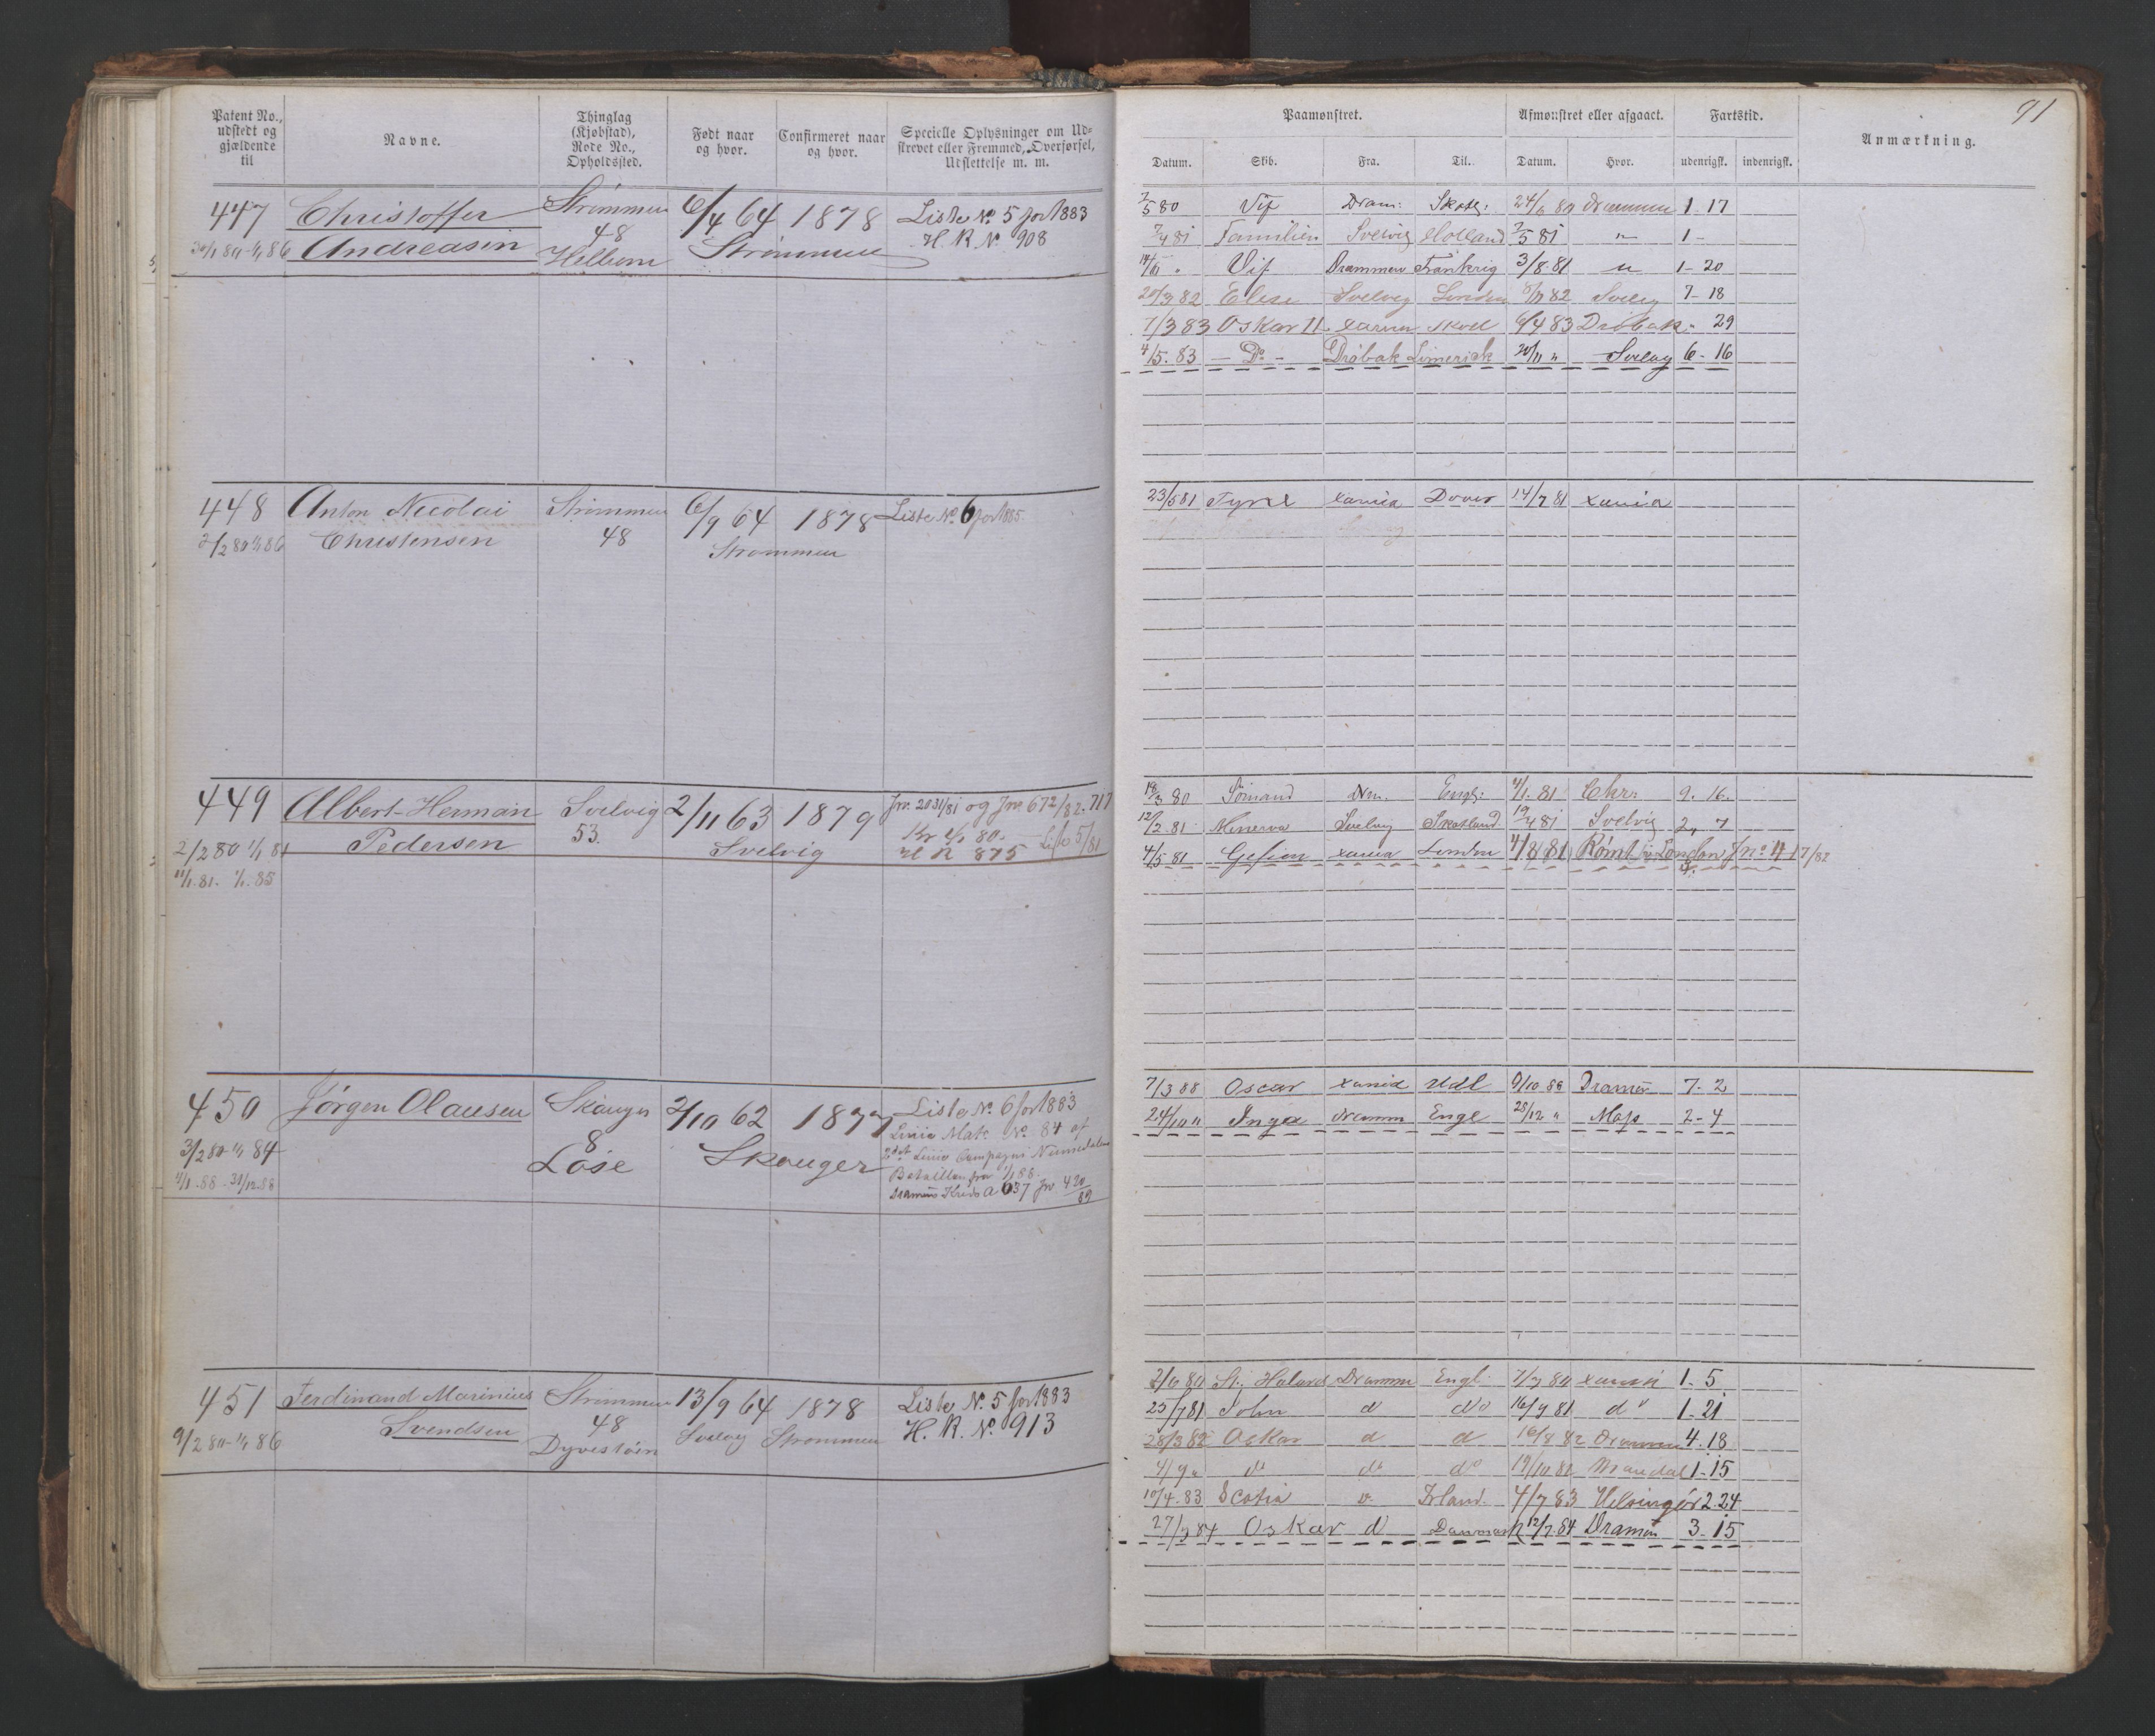 91
Patent No., udstedt og gjældende til
Navne.
Thinglag (Kjøbstad), Rode No., Opholdssted.
Født naar og hvor.
Confirmeret naar og hvor.
Specielle Oplysninger om Udskrevet eller Fremmed, Overførsel, Udslettelse m. m.
Paamønstret.
Afmønstret eller afgaaet.
Fartstid.
Anmærkning.
Datum. Skib. Fra. Til. Datum. Hvor. udenrigsk. indenrigsk.
447 Christoffer Strømmen 6/4 64 1878 Liste No 5 for 1883
Andreasen 48 Strømmen H. R. No 908
Helleren
7/5 80 Vif Dram: Skotl: Drammen 1 17
7/4 81 Familien Svelvig Holland 7/5 81 " 1 -
Vif Drammen Frankrig 3/8 81 " 1 - 20
20/3 82 Elise Svelvig London Svelvg 7 - 18
7/3 83 Oskar II Xania 6/4 83 Drøbak - 29
4/5. 83 - Do - Drøbak Limerick 20/11 " Svelvg 6 - 16
448 Anton Nicolai Strømmen 6/9 64 1878 Liste No 6 for 1885.
Christensen 48 Strømmen
23/5 81 Xania Dover 14/7 81 Xania
449 Albert Herman Svelvig 2/11 63 1879 Jnr. 2031/81 og Jnr 672/82. 717
Pedersen 53. Svelvig
2/2 80 1/1 81 H R 875
11/1. 81. 1/1. 85
18/3 80 Sømand Dm. Engl: 4/1. 81 Chr: 9. 16.
12/2. 81 Minerva Svelvig Skotland 19/4 81 Svelvig 2, 7
4/5 81 Gefion Xania London 4/8 81 Rømt i London Jno 417/82
450 Jørgen Olausen Skauger 2/10 62 1877 Liste No. 6 for 1883
3/2 80 - 1/1 84 8 Skauger Linie Msk No 84 af
1/1 - 88 - 31/12 88 Løse Linie Compagni Numedalens
Bataillon fra 1/1 88.
Dramens Kreds A 637 Jnr 420/89
7/3 88 Oscar Xania Udl 9/10 88 Dramen 7. 2
24/10 " Inga Dramm Engl 28/12 " Moss 2 - 4
451 Ferdinand Marinius Strømmen 13/9 64 1878 Liste No. 5 for 1883
Svendsen 48 Svelvg Strømmen H. R. No. 913
9/2 80 - 1/1 86 Dyvestøen
St. Halvard Dramm Engl. Xania 1. 5
25/7 81 John d do 16/9 81 do 1 - 21
28/3 82 Oskar d d 16/8 82 Drammen 4. 18
4/9 " do do do 19/10 82 Mandal 1 - 15
10/4. 83 Scotia Irland. 4/7 83 Helsingør 2. 24
27/3 84 Oskar d Danmark 12/7 84 Dramen 3. 15